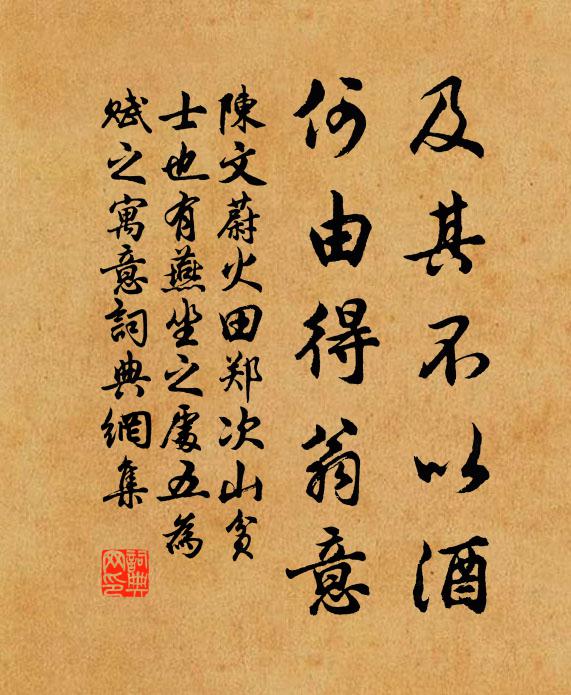 及其不以酒
何由得翁意
陳文蔚火田郑次山貧
士也有燕坐之處五為
賦之寓意詞典網集
詞典网印